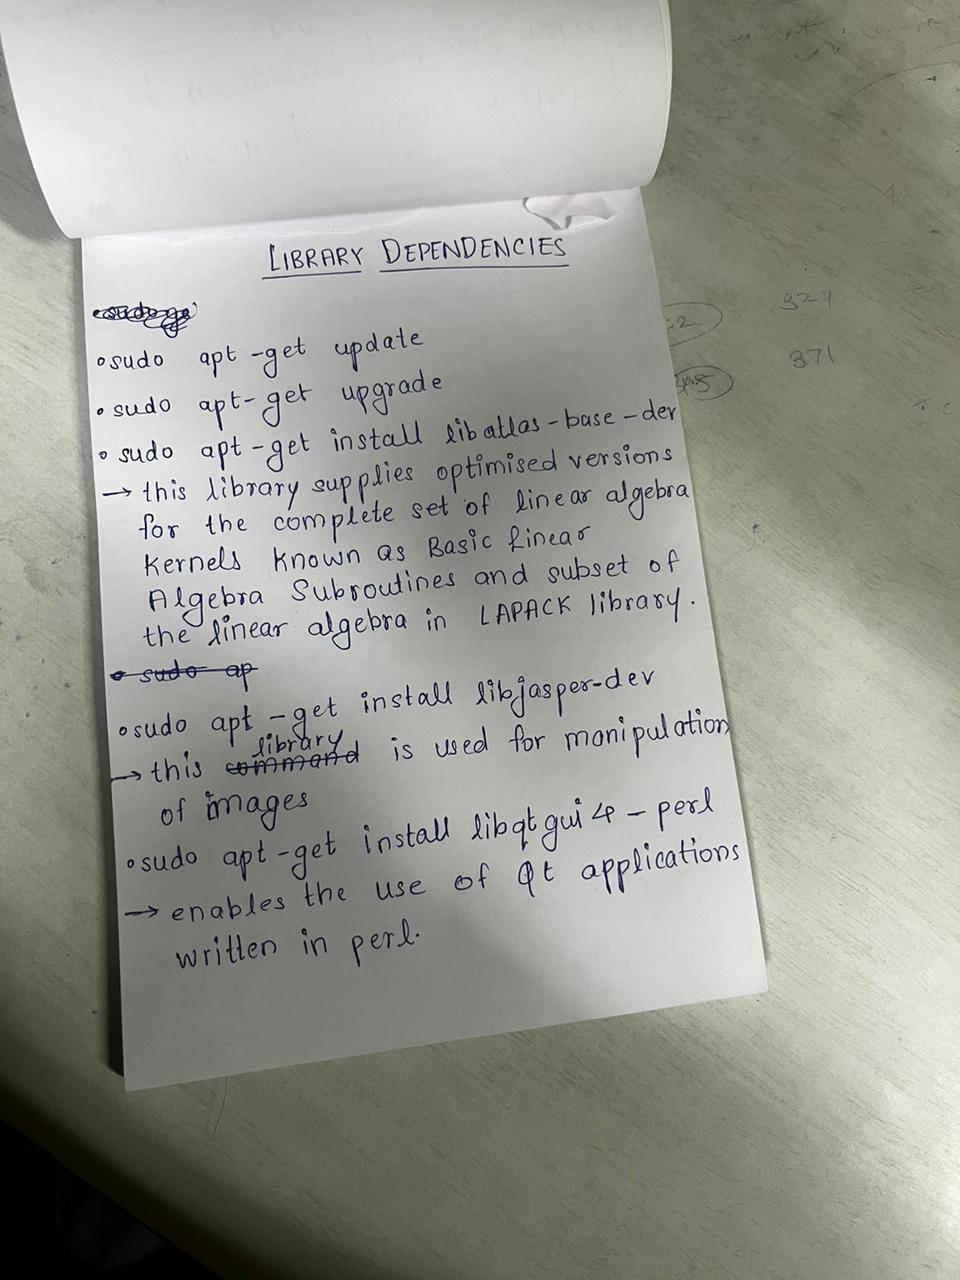 LIBRARY DEPENDENCIES
• sudo apt-get update
• sudo apt-get upgrade
• sudo apt-get install libatlas-base-dev
→ this library supplies optimised versions
for the complete set of linear algebra
kernels known as Basic Linear
Algebra Subroutines and subset of
the linear algebra in LAPACK library.
• sudo ap
• sudo apt-get install libjasper-dev
library
→ this command is used for manipulation
of images
• sudo apt-get install libqtgui4-perl
→ enables the use of Qt applications
written in perl.
324
371